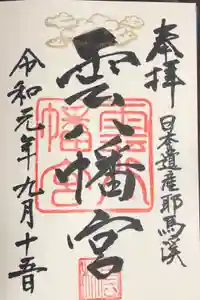 奉拝
日本遺産耶馬溪
雲八幡宮
雲八幡宮
令和元年九月十五日